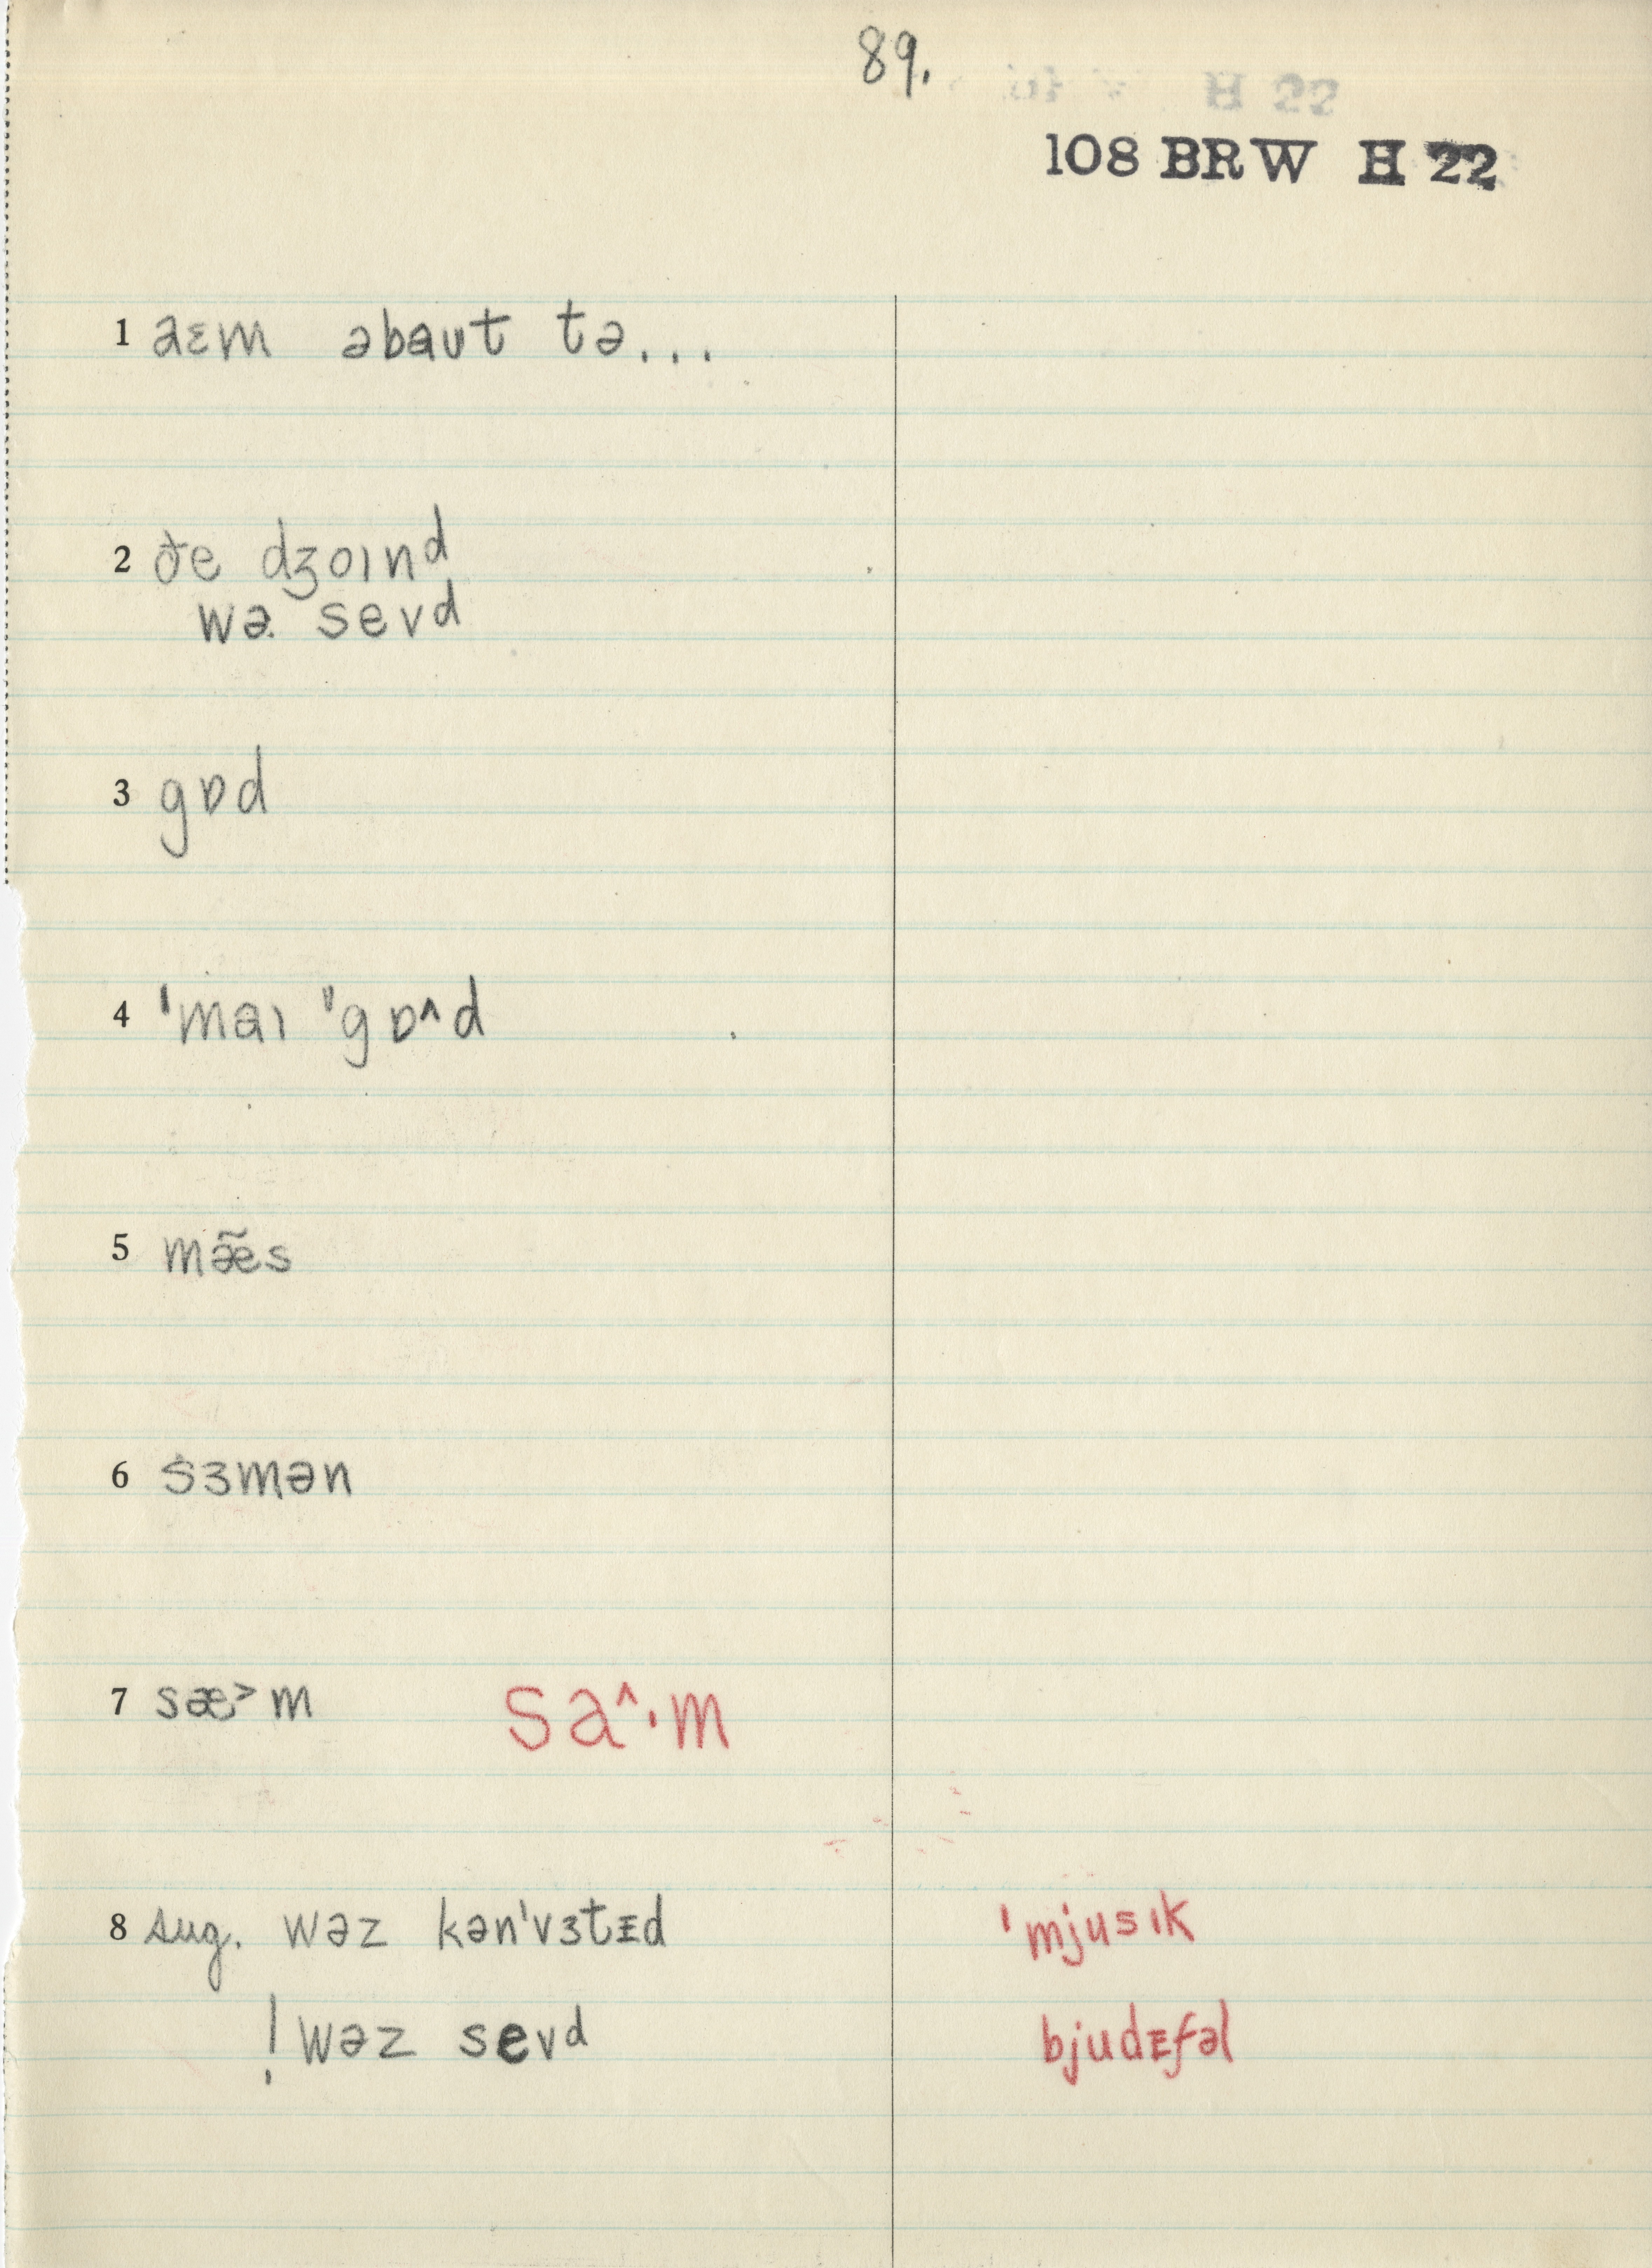 89.
108 BRW H 22
1 aɛm əbaut tə...
2 ðe dʒoɪnd
wə sevd
3 gɒd
4 ˈmaɪ ˈˈgɒ^d
5 mæ̃s
6 sɜmən
7 sæ>m sa^·m
8 sug. wəz kənˈvɜtᵻd ˈmjusɪk
! wəz sevd bjudᵻfəl